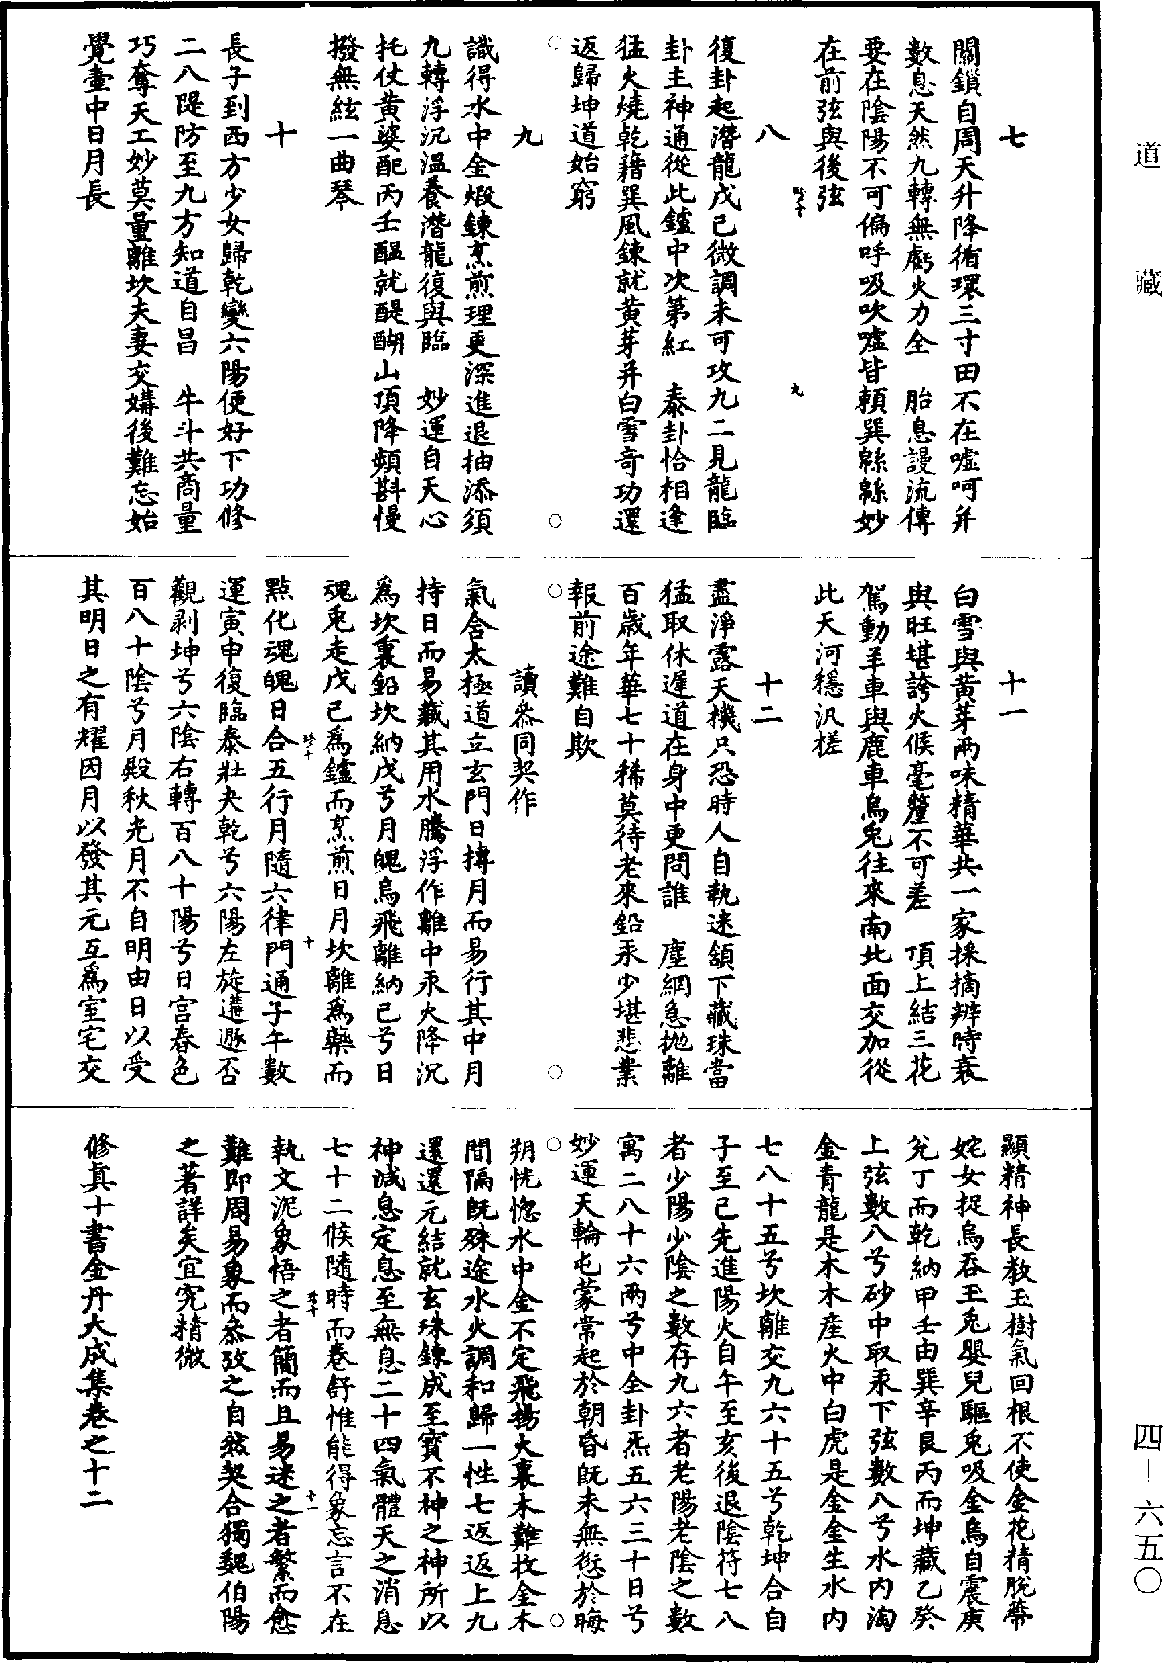 道藏
四—六五〇
七
關鎖自周天升降循環三寸田不在噓呵并
數息天然九轉無虧火力全　胎息謾流傳
要在陰陽不可偏呼吸吹噓皆賴巽綿綿妙
在前弦與後弦
珍十　九
八
復卦起潛龍戊己微調未可攻九二見龍臨
卦主神通從此鑪中次第紅　泰卦恰相逢
猛火燒乾藉巽風鍊就黃芽并白雪奇功還
返歸坤道始窮
九
識得水中金煅鍊烹煎理更深進退抽添須
九轉浮沉溫養潛龍復與臨　妙運自天心
托仗黃婆配丙壬醞就醍醐山頂降頻斟慢
撥無絃一曲琴
十
長子到西方少女歸乾變六陽便好下功修
二八隄防至九方知道自昌　牛斗共商量
巧奪天工妙莫量離坎夫妻交媾後難忘始
覺壺中日月長
十一
白雪與黃芽兩味精華共一家採摘辨時衰
與旺堪誇火候毫釐不可差　頂上結三花
駕動羊車與鹿車烏兔往來南北面交加從
此天河穩汎槎
十二
盡淨露天機只恐時人自執迷頷下藏珠當
猛取休遲道在身中更問誰　塵網急拋離
百歲年華七十稀莫待老來鉛汞少堪悲業
報前途難自欺
讀叅同契作
氣含太極道立玄門日摶月而易行其中月
持日而易藏其用水騰浮作離中汞火降沉
爲坎裏鉛坎納戊兮月魄烏飛離納己兮日
魂兎走戊己爲鑪而烹煎日月坎離爲藥而
珍十　十
點化魂魄日合五行月隨六律門通子午數
運寅申復臨泰壯夬乾兮六陽左旋遘遯否
觀剥坤兮六陰右轉百八十陽兮日宫春色
百八十陰兮月殿秋光月不自明由日以受
其明日之有耀因月以發其元互爲室宅交
顯精神長教玉樹氣回根不使金花精脫蔕
姹女捉烏吞玉兎嬰兒驅兎吸金烏自震庚
兊丁而乾納甲壬由巽辛艮丙而坤藏乙癸
上弦數八兮砂中取汞下弦數八兮水内淘
金青龍是木木産火中白虎是金金生水内
七八十五兮坎離交九六十五兮乾坤合自
子至己先進陽火自午至亥後退陰符七八
者少陽少陰之數存九六者老陽老陰之數
寓二八十六兩兮中全卦炁五六三十日兮
妙運天輪屯蒙常起於朝昏旣未無愆於晦
朔恍惚水中金不定飛揚火裏木難收金木
間隔旣殊途水火調和歸一性七返返上九
還還元結就玄珠鍊成至寶不神之神所以
神減息定息至無息二十四氣體天之消息
七十二候隨時而卷舒惟能得象忘言不在
珍十　十一
執文泥象悟之者簡而且易迷之者繁而愈
難即周易象而叅攷之自然契合獨魏伯陽
之著詳矣宜究精微
修真十書金丹大成集卷之十二